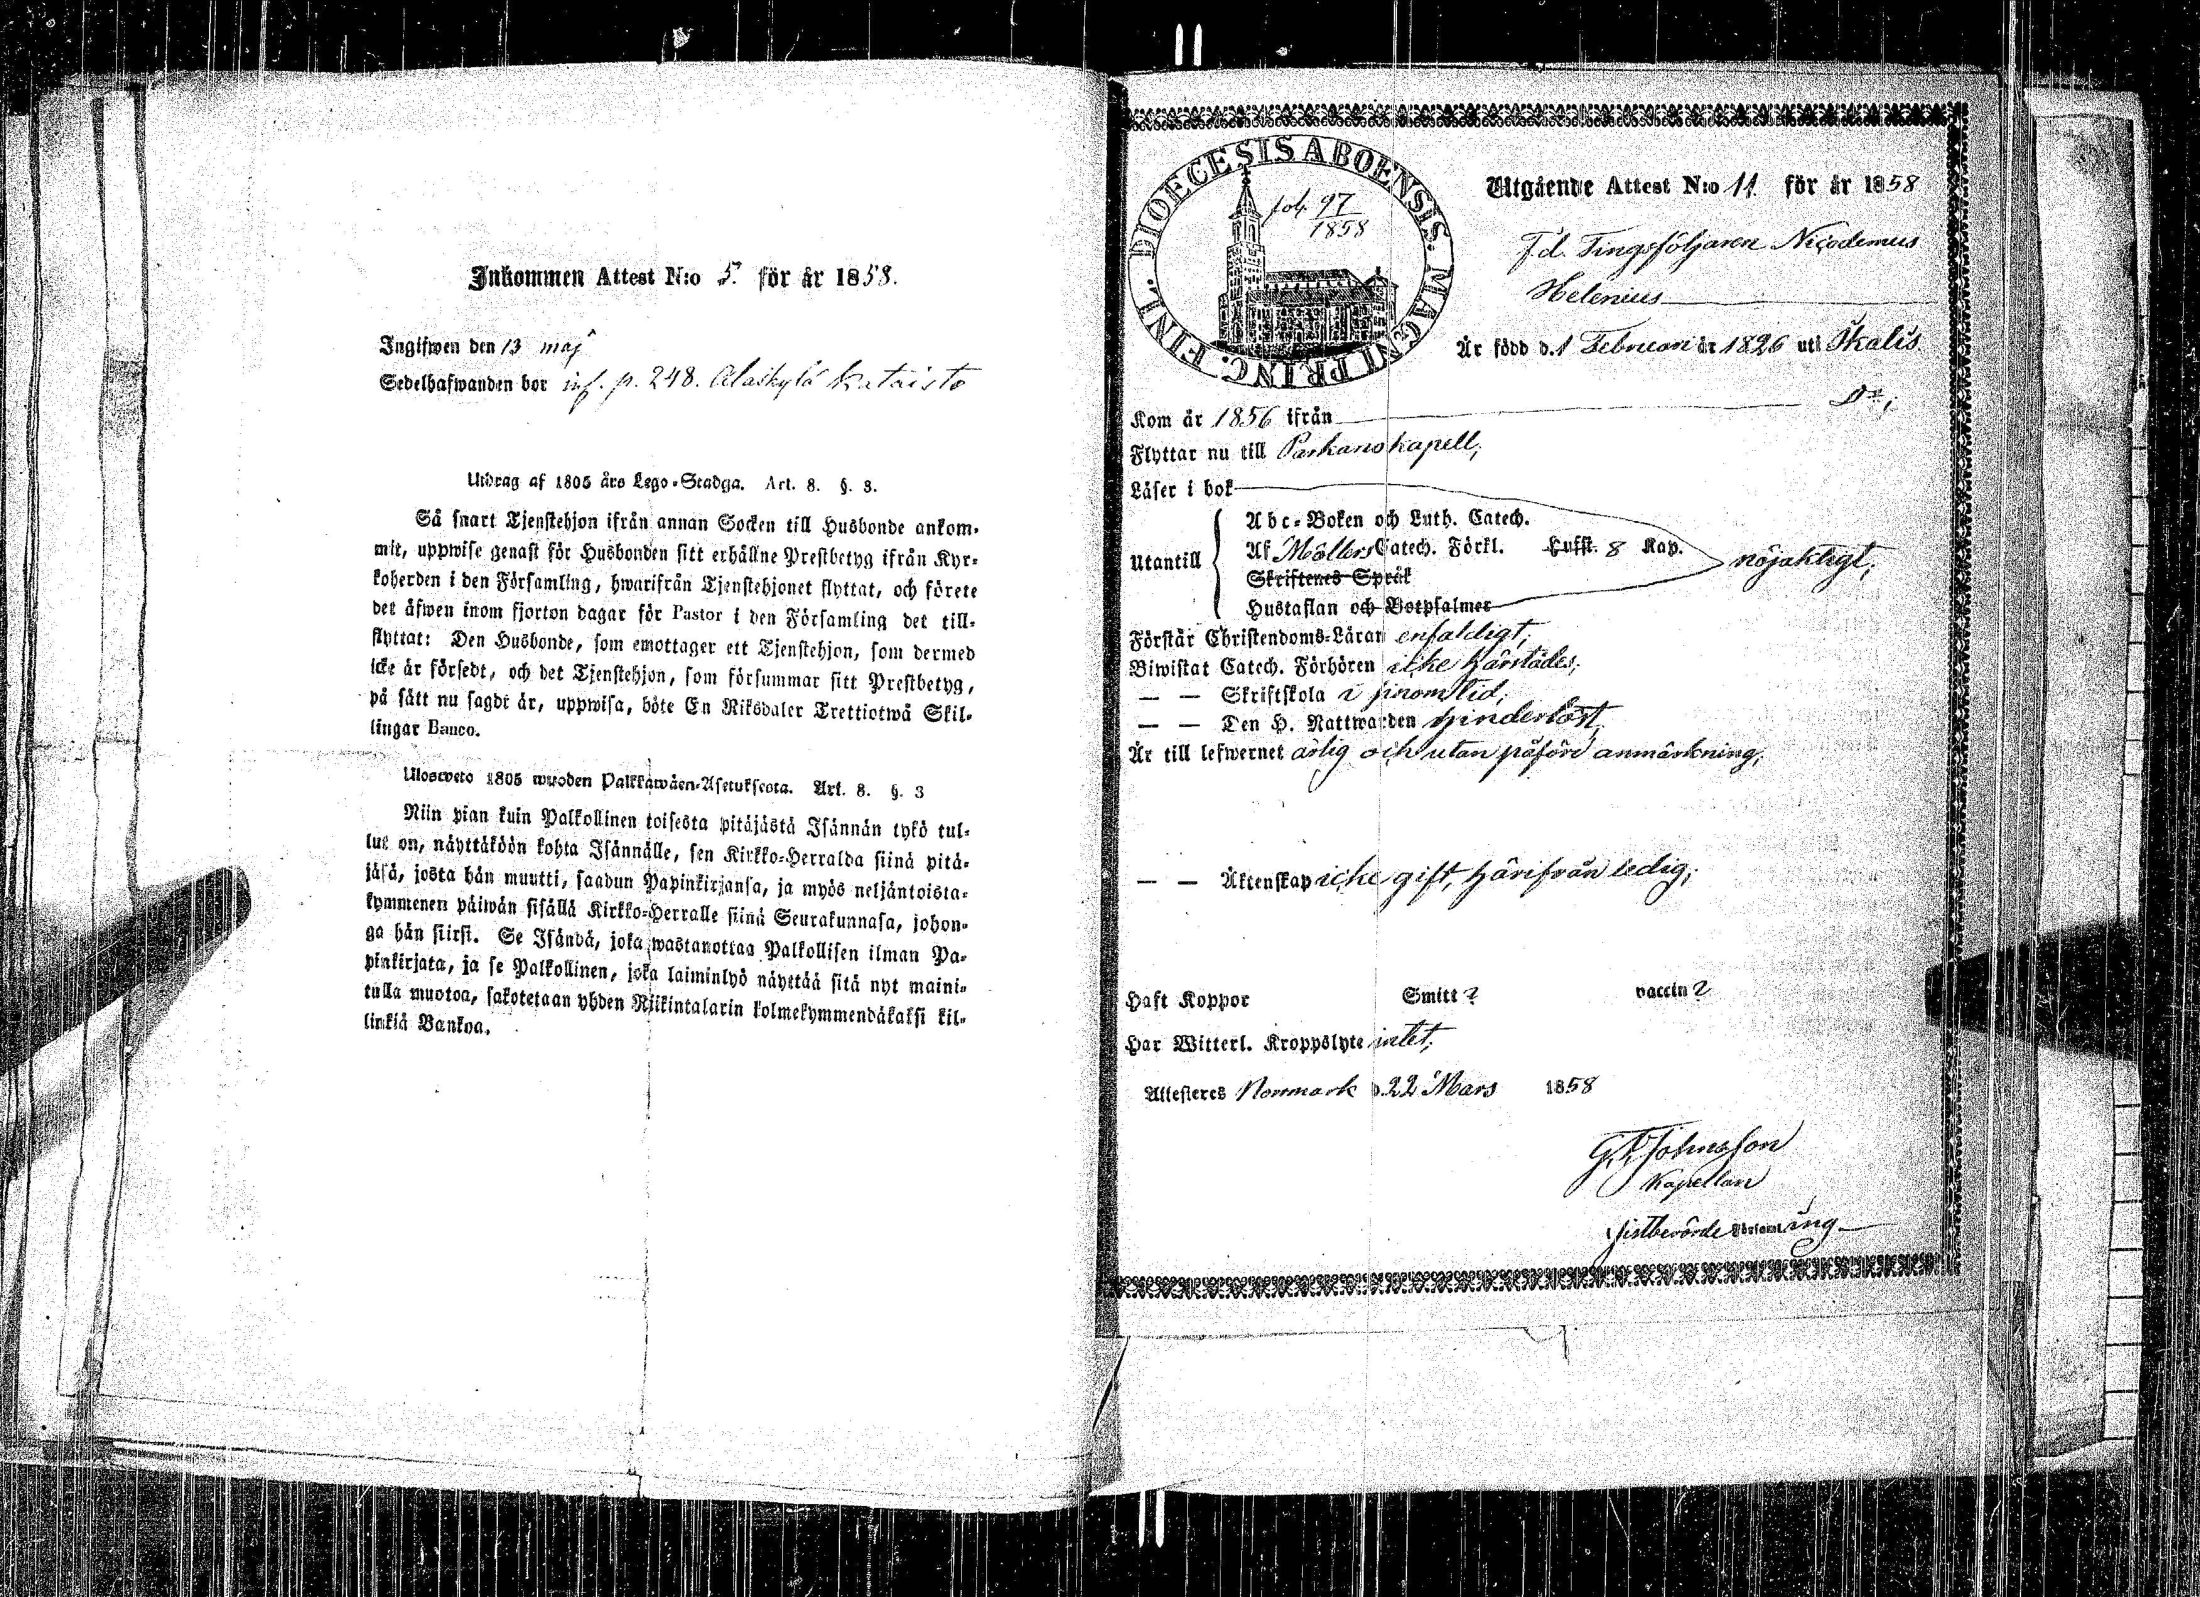 Inkommen Attest N:o 5. för år 1858.
Ingifwen den 13 maj
Sedelhafwanden bor inf. p. 248. Alaskylä Kataisto
Utdrag af 1805 års Lego-Stadga. Art. 8. §. 3.
Så snart Tjenstehjon ifrån annan Socken till Husbonde ankom-
mit, uppwise genast för Husbonden sitt erhållne Prestbetyg ifrån Kyr-
koherden i den Församling, hwarifrån Tjenstehjonet flyttat, och förete
det äfwen inom fjorton dagar för Pastor i den Församling det till-
flyttat: Den Husbonde, som emottager ett Tjenstehjon, som dermed
icke är försedt, och det Tjenstehjon, som försummar sitt Prestbetyg,
på sätt nu sagdt är, uppwisa, böte En Riksdaler Trettiotwå Skil-
lingar Banco.
Ulosweto 1805 wuoden Palkkawäen-Asetuksesta. Art. 8. §. 3
Niin pian kuin Palkollinen toisesta pitäjästä Isännän tykö tul-
lut on, näyttäköön kohta Isännälle, sen Kirkko-Herralda siinä pitä-
jäsä, josta hän muutti, saadun Papinkirjansa, ja myös neljäntoista-
kymmenen päiwän sisällä Kirkko-Herralle siinä Seurakunnasa, johon-
ga hän siirsi. Se Isändä, joka wastanottaa Palkollisen ilman Pa-
pinkirjata, ja se Palkollinen, joka laiminlyö näyttää sitä nyt maini-
tulla muotoa, sakotetaan yhden Riikintalarin kolmekymmendäkaksi kil-
linkiä Bankoa.
DIOECESIS ABOENSIS. MAGNI PRINC. FINL.
fol. 97
1858
Utgående Attest N:o 11. för år 1858
F.d. Tingsföljaren Nicodemus
Helenius
Är född d. 1 Februari år 1826 uti Ikalis
Kom år 1856 ifrån D:o;
Flyttar nu till Parkano kapell;
Läser i bok
Utantill
Abc-Boken och Luth. Catech.
Af Möllers Catech. Förkl. Hufst. 8 Kap.
nöjaktigt;
Skriftenes Språk
Hustaflan och Botpsalmer
Förstår Christendoms-Läran enfaldigt;
Biwistat Catech. Förhören icke härstädes;
— — Skriftskola i sinom tid;
— — Den H. Nattwarden hinderlöst,
Är till lefwernet ärlig och utan påförd anmärkning;
— — Äktenskap icke gift, härifrån ledig;
Haft Koppor Smitt ? vaccin ?
Har Witterl. Kroppslyte intet;
Attesteres Norrmark d. 22 Mars 1858
Johnsson
Kapellan
sistberörde Församling